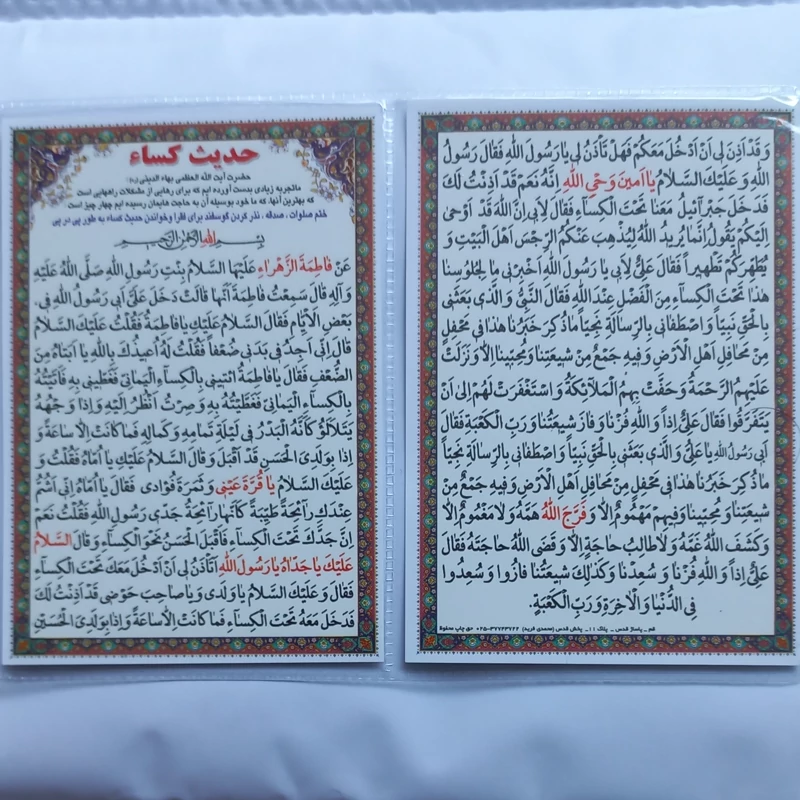 حدیث کساء
حضرت آیت الله العظمی بهاء الدینی (ره)
ماتجربه زیادی بدست آورده ایم که برای رهایی از مشکلات راههایی است
که بهترین آنها، که ما خود بوسیله آن به حاجت هایمان رسیده ایم چهار چیز است
ختم صلوات ، صدقه ، نذر کردن گوسفند برای فقرا وخواندن حدیث کساء به طور پی در پی
بِسْمِ اللهِ الرَّحْمٰنِ الرَّحِیمِ
عَنْ فاطِمَةَ الزَّهْراءِ عَلَیْهَا السَّلامُ بِنْتِ رَسُولِ اللهِ صَلَّی اللهُ عَلَیْهِ
وَآلِهِ قالَ سَمِعْتُ فاطِمَةَ اَنَّها قالَتْ دَخَلَ عَلَیَّ اَبی رَسُولُ اللهِ فی.
بَعْضِ الْاَیّامِ فَقالَ السَّلامُ عَلَیْكِ یا فاطِمَةُ فَقُلْتُ عَلَیْكَ السَّلامُ
قالَ اِنّی اَجِدُ فی بَدَنی ضُعْفاً فَقُلْتُ لَهُ اُعیذُكَ بِاللهِ یا اَبَتاهُ مِنَ
الضُّعْفِ فَقالَ یا فاطِمَةُ ائْتینی بِالْکِساءِ الْیَمانی فَغَطّینی بِهِ فَاَتَیْتُهُ
بِالْکِساءِ الْیَمانی فَغَطَّیْتُهُ بِهِ وَصِرْتُ اَنْظُرُ اِلَیْهِ وَاِذا وَجْهُهُ
یَتَلَاْلَؤُ کَاَنَّهُ الْبَدْرُ فی لَیْلَةِ تَمامِهِ وَکَمالِهِ فَما کانَتْ اِلّا ساعَةً وَ
اِذا بِوَلَدِیَ الْحَسَنِ قَدْ اَقْبَلَ وَقالَ السَّلامُ عَلَیْكِ یا اُمّاهُ فَقُلْتُ وَ
عَلَیْكَ السَّلامُ یا قُرَّةَ عَیْنی وَثَمَرَةَ فُؤادی فَقالَ یا اُمّاهُ اِنّی اَشَمُّ
عِنْدَكِ رائِحَةً طَیِّبَةً کَاَنَّها رائِحَةُ جَدّی رَسُولِ اللهِ فَقُلْتُ نَعَمْ
اِنَّ جَدَّكَ تَحْتَ الْکِساءِ فَاَقْبَلَ الْحَسَنُ نَحْوَ الْکِساءِ وَقالَ السَّلامُ
عَلَیْكَ یا جَدّاهُ یا رَسُولَ اللهِ اَتَأْذَنُ لی اَنْ اَدْخُلَ مَعَكَ تَحْتَ الْکِساءِ
فَقالَ وَعَلَیْكَ السَّلامُ یا وَلَدی وَیا صاحِبَ حَوْضی قَدْ اَذِنْتُ لَكَ
فَدَخَلَ مَعَهُ تَحْتَ الْکِساءِ فَما کانَتْ اِلّا ساعَةً وَاِذا بِوَلَدِیَ الْحُسَیْنِ
وَقَدْ اَذِنَ لی اَنْ اَدْخُلَ مَعَکُمْ فَهَلْ تَأْذَنُ لی یا رَسُولَ اللهِ فَقالَ رَسُولُ
اللهِ وَعَلَیْكَ السَّلامُ یا اَمینَ وَحْیِ اللهِ اِنَّهُ نَعَمْ قَدْ اَذِنْتُ لَكَ
فَدَخَلَ جَبْرائیلُ مَعَنا تَحْتَ الْکِساءِ فَقالَ لِاَبی اِنَّ اللهَ قَدْ اَوْحیٰ
اِلَیْکُمْ یَقُولُ اِنَّما یُریدُ اللهُ لِیُذْهِبَ عَنْکُمُ الرِّجْسَ اَهْلَ الْبَیْتِ وَ
یُطَهِّرَکُمْ تَطْهیراً فَقالَ عَلِیٌّ لِاَبی یا رَسُولَ اللهِ اَخْبِرْنی ما لِجُلُوسِنا
هٰذا تَحْتَ الْکِساءِ مِنَ الْفَضْلِ عِنْدَ اللهِ فَقالَ النَّبِیُّ وَالَّذی بَعَثَنی
بِالْحَقِّ نَبِیّاً وَاصْطَفانی بِالرِّسالَةِ نَجِیّاً ما ذُکِرَ خَبَرُنا هٰذا فی مَحْفِلٍ
مِنْ مَحافِلِ اَهْلِ الْاَرْضِ وَفیهِ جَمْعٌ مِنْ شیعَتِنا وَمُحِبّینا اِلّا وَنَزَلَتْ
عَلَیْهِمُ الرَّحْمَةُ وَحَفَّتْ بِهِمُ الْمَلائِکَةُ وَاسْتَغْفَرَتْ لَهُمْ اِلیٰ اَنْ
یَتَفَرَّقُوا فَقالَ عَلِیٌّ اِذاً وَاللهِ فُزْنا وَفازَ شیعَتُنا وَرَبِّ الْکَعْبَةِ فَقالَ
اَبی رَسُولُ اللهِ یا عَلِیُّ وَالَّذی بَعَثَنی بِالْحَقِّ نَبِیّاً وَاصْطَفانی بِالرِّسالَةِ نَجِیّاً
ما ذُکِرَ خَبَرُنا هٰذا فی مَحْفِلٍ مِنْ مَحافِلِ اَهْلِ الْاَرْضِ وَفیهِ جَمْعٌ مِنْ
شیعَتِنا وَمُحِبّینا وَفیهِمْ مَهْمُومٌ اِلّا وَفَرَّجَ اللهُ هَمَّهُ وَلا مَغْمُومٌ اِلّا
وَکَشَفَ اللهُ غَمَّهُ وَلا طالِبُ حاجَةٍ اِلّا وَقَضَی اللهُ حاجَتَهُ فَقالَ
عَلِیٌّ اِذاً وَاللهِ فُزْنا وَسُعِدْنا وَکَذٰلِكَ شیعَتُنا فازُوا وَسُعِدُوا
فِی الدُّنْیا وَالْاٰخِرَةِ وَرَبِّ الْکَعْبَةِ.
قم _ پاساژ قدس _ پلاک ۱۱_ پخش قدس (محمدی فرید) ۳۷۷۴۳۷۴۲-۰۲۵ حق چاپ محفوظ